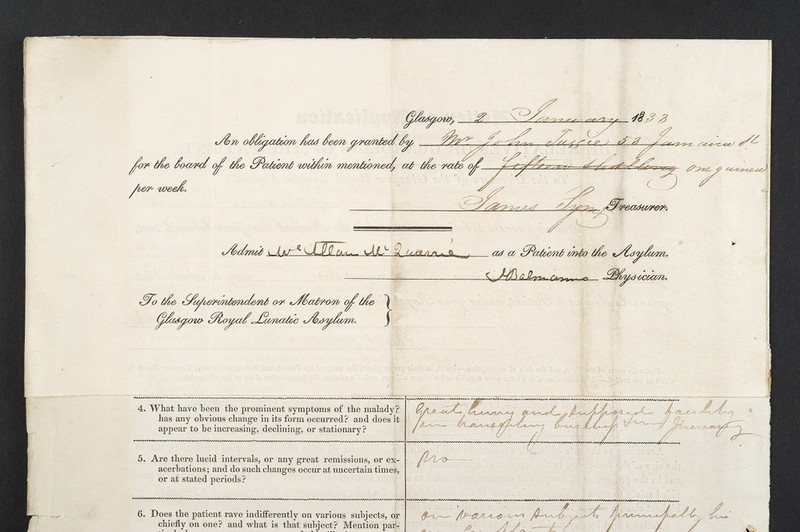 Glasgow, 2 January 1833
An obligation has been granted by Mr John 53 Jamaica St
for the board of the Patient within mentioned, at the rate of fifteen shilling one guinea
per week.
James Sym Treasurer.
Admit Mr Allan McQuarrie as a Patient into the Asylum.
JBalmanno Physician.
To the Superintendent or Matron of the
Glasgow Royal Lunatic Asylum.
4. What have been the prominent symptoms of the malady?
has any obvious change in its form occurred? and does it
appear to be increasing, declining, or stationary?
Great hurry and supposed facility
in transacting business and
5. Are there lucid intervals, or any great remissions, or ex-
acerbations; and do such changes occur at uncertain times,
or at stated periods?
No
6. Does the patient rave indifferently on various subjects, or
chiefly on one? and what is that subject? Mention par-
on various subjects principally his